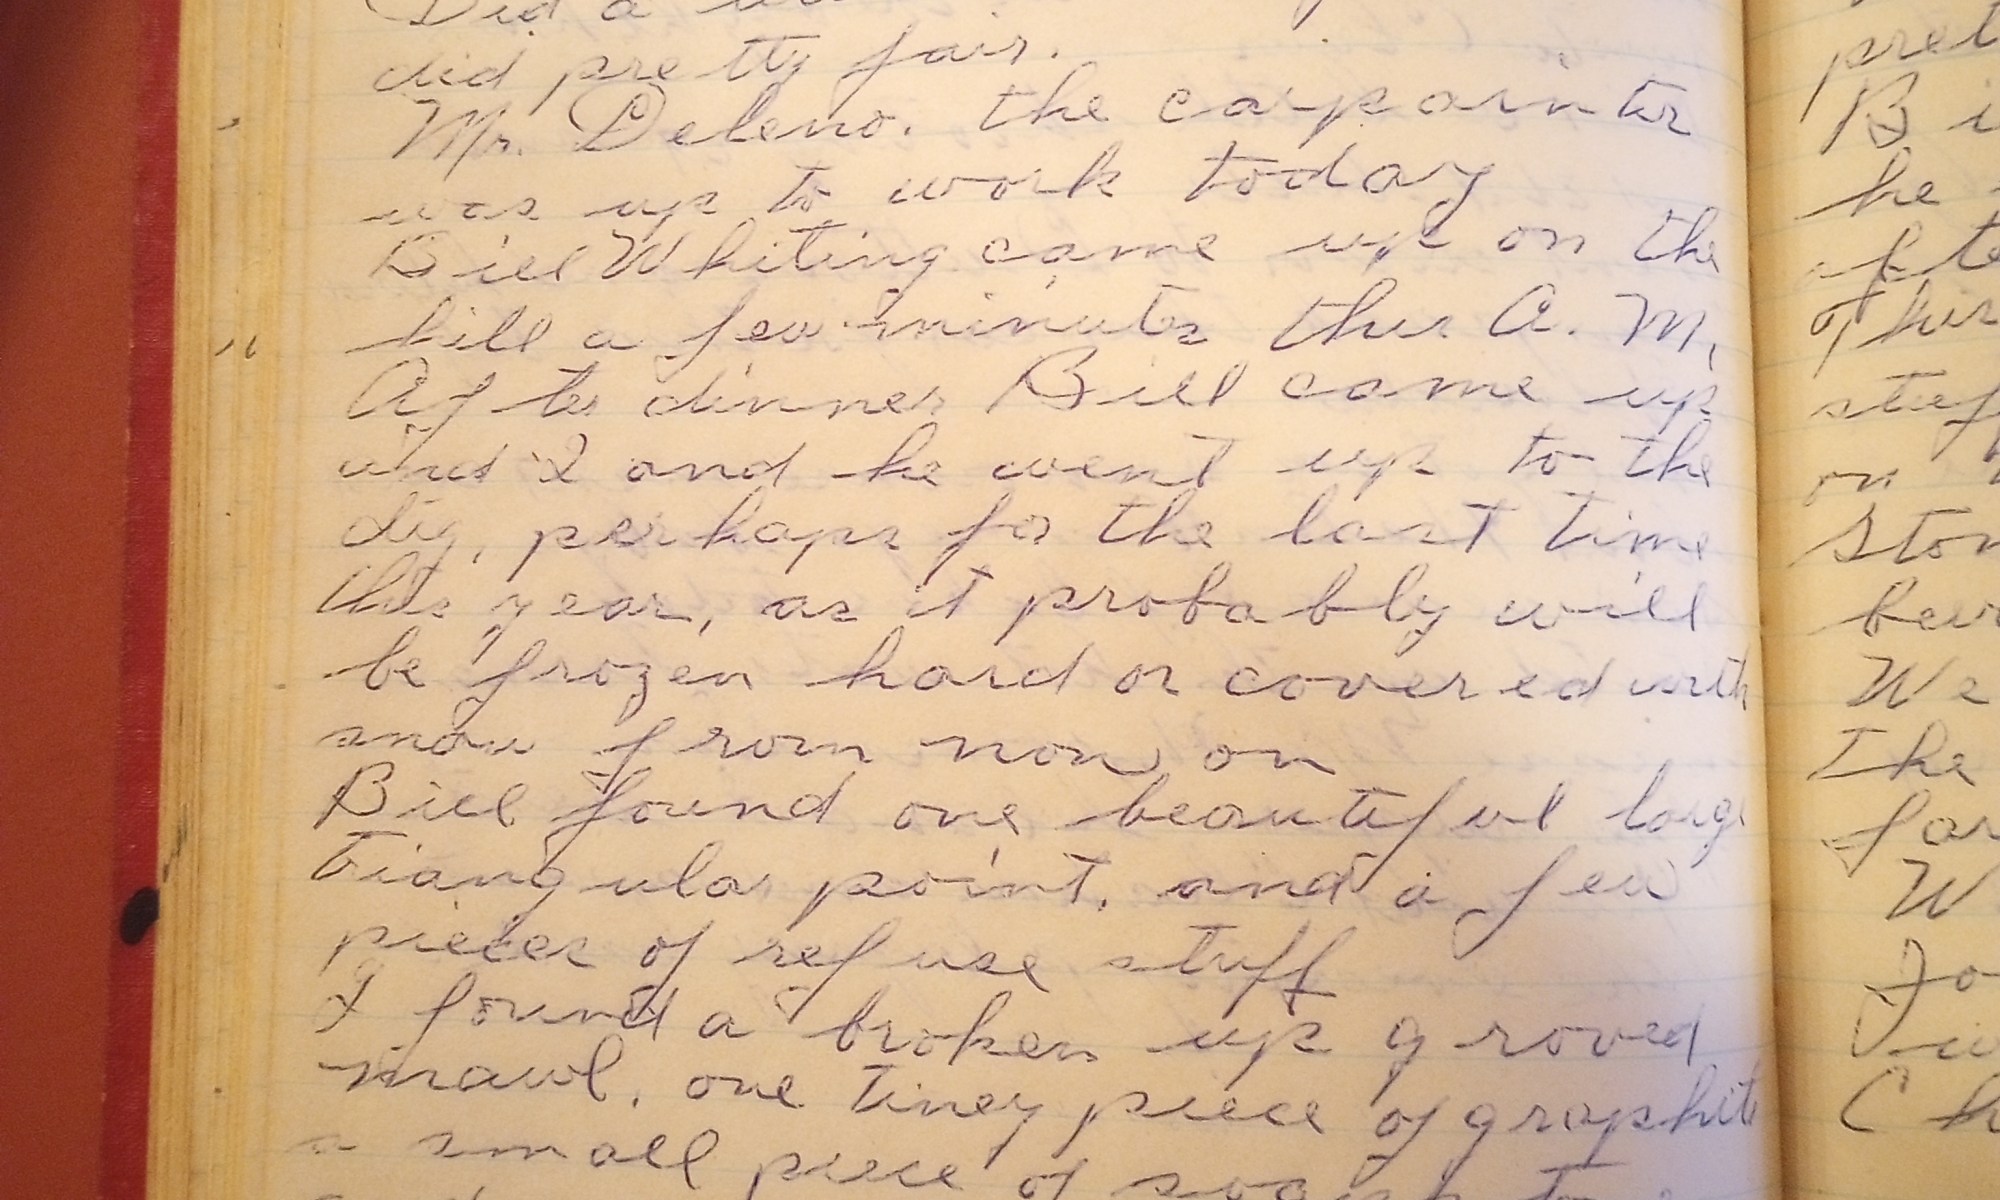 Did a
did pretty fair.
Mr. Deleno. the carpainter
was up to work today
Bill Whiting came up on the
hill a few minutes this A. M.
After dinner Bill came up
and I and he went up to the
dig, perhaps for the last time
this year, as it probably will
be frozen hard or covered with
snow from now on
Bill found one beautiful large
triangular point, and a few
pieces of refuse stuff
I found a broken up groved
mawl, one tiney piece of graphite
a small piece of
B
he
of his
on
We
The
W